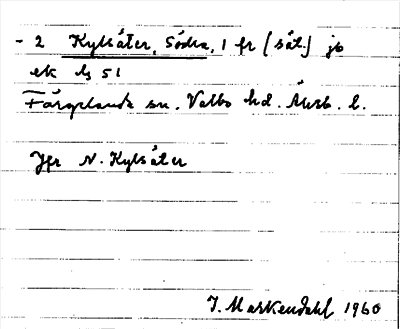 - 2 Kylsäter, Södra, 1 fr (sät.) jb
ek bl 51
Färgelanda sn. Valbo hd. Älvsb. l.
Jfr N. Kylsäter
I. Markendahl 1960